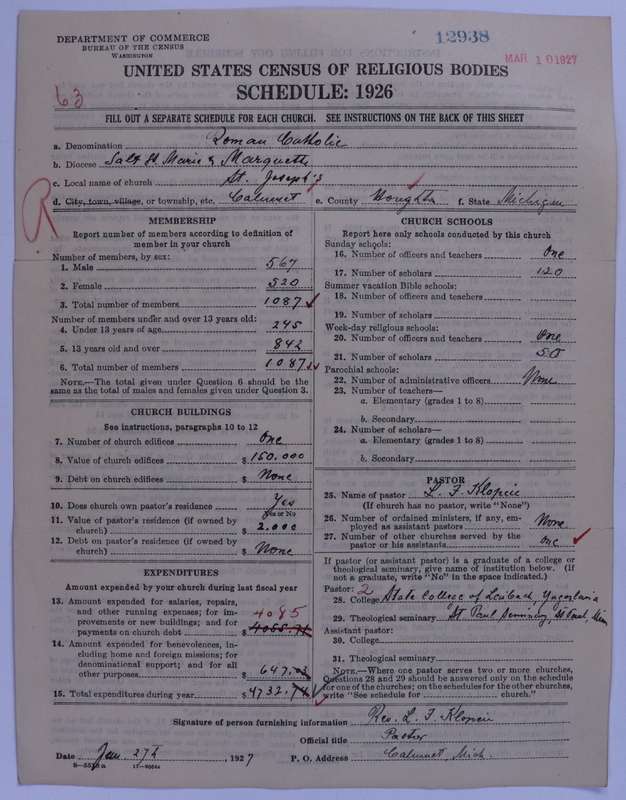 DEPARTMENT OF COMMERCE
BUREAU OF THE CENSUS
WASHINGTON
12938
MAR 10 1927
UNITED STATES CENSUS OF RELIGIOUS BODIES
SCHEDULE: 1926
63
FILL OUT A SEPARATE SCHEDULE FOR EACH CHURCH. SEE INSTRUCTIONS ON THE BACK OF THIS SHEET
a. Denomination Roman Catholic
b. Diocese Salt St Marie & Marquette
c. Local name of church St. Joseph's
R
d. City, town, village, or township, etc. Calumet e. County Houghton f. State Michigan
MEMBERSHIP
Report number of members according to definition of
member in your church
Number of members, by sex:
1. Male 567
2. Female 520
3. Total number of members 1087
Number of members under and over 13 years old:
4. Under 13 years of age 245
5. 13 years old and over 842
6. Total number of members 1087
NOTE.—The total given under Question 6 should be the
same as the total of males and females given under Question 3.
CHURCH BUILDINGS
See instructions, paragraphs 10 to 12
7. Number of church edifices One
8. Value of church edifices $ 150.000
9. Debt on church edifices $ None
10. Does church own pastor's residence Yes
Yes or No
11. Value of pastor's residence (if owned by
church) $ 2.000
12. Debt on pastor's residence (if owned by
church) $ None
EXPENDITURES
Amount expended by your church during last fiscal year
13. Amount expended for salaries, repairs,
and other running expenses; for im-
provements or new buildings; and for
payments on church debt $ 4085
14. Amount expended for benevolences, in-
cluding home and foreign missions; for
denominational support; and for all
other purposes $ 647.03
15. Total expenditures during year $ 4732.74
CHURCH SCHOOLS
Report here only schools conducted by this church
Sunday schools:
16. Number of officers and teachers One
17. Number of scholars 120
Summer vacation Bible schools:
18. Number of officers and teachers
19. Number of scholars
Week-day religious schools:
20. Number of officers and teachers One
21. Number of scholars 50
Parochial schools:
22. Number of administrative officers None
23. Number of teachers—
a. Elementary (grades 1 to 8)
b. Secondary
24. Number of scholars—
a. Elementary (grades 1 to 8)
b. Secondary
PASTOR
25. Name of pastor L. F. Klopcic
(If church has no pastor, write "None")
26. Number of ordained ministers, if any, em-
ployed as assistant pastors None
27. Number of other churches served by the
pastor or his assistants One
If pastor (or assistant pastor) is a graduate of a college or
theological seminary, give name of institution below. (If
not a graduate, write "No" in the space indicated.)
Pastor: 2
28. College State College of Laibach, Yugoslavia
29. Theological seminary St Paul Seminary, St Paul, Minn
Assistant pastor:
30. College
31. Theological seminary
NOTE.—Where one pastor serves two or more churches,
Questions 28 and 29 should be answered only on the schedule
for one of the churches; on the schedules for the other churches,
write "See schedule for church."
Signature of person furnishing information Rev. L. F. Klopcic
Official title Pastor
Date Jan. 27th, 1927 P. O. Address Calumet, Mich.